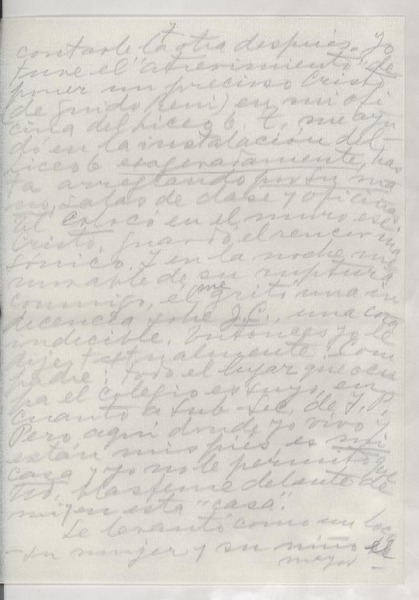 contarle la otra después. Yo
tuve el "atrevimiento" de
poner un precioso Cristo
(de Guido Reni) en mi ofi
cina del Liceo 6. T. me ayu
dó en la instalación del
Liceo 6 exageradamente, has
ta arreglando por su ma
no, salas de clase y oficinas
Él colocó en el muro ese
Cristo, guardó el rencor ma
sónico. Y en la noche me
morable de su ruptura
conmigo, él me gritó una in
decencia sobre J.C., una cosa
indecible. Entonces yo le
dije textualmente: Com
padre: todo el lugar que ocu
pa el colegio es suyo, en
cuanto a Sub-Sec. de I. P.
Pero aquí donde yo vivo y
están mis pies es mi
casa y yo no le permito que
Ud. blasfeme delante de
mí, en esta "casa".
Se levantó como un loco
- su mujer y su niño
mayor -